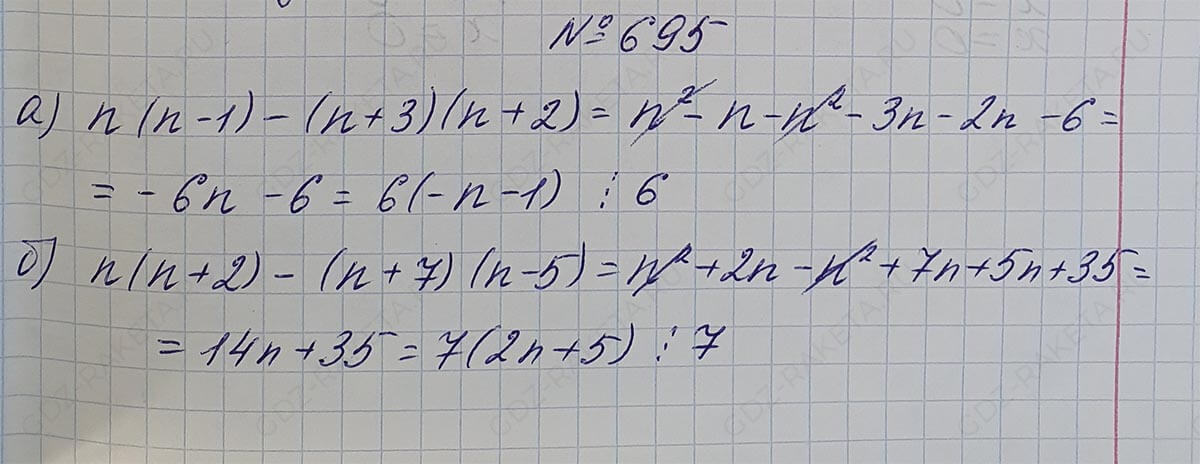 № 695
а) n(n-1)-(n+3)(n+2)=n²-n-n²-3n-2n-6=
=-6n-6=6(-n-1) ⋮ 6
б) n(n+2)-(n+7)(n-5)=n²+2n-n²+7n+5n+35=
=14n+35=7(2n+5) ⋮ 7
GDZ-RAKETA.RU